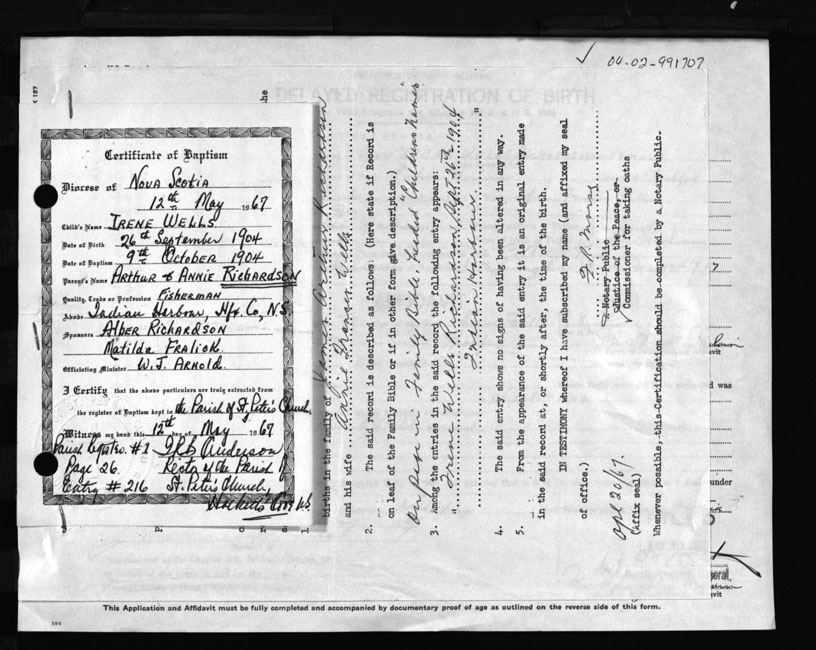 04-02-991707
DELAYED REGISTRATION OF BIRTH
Certificate of Baptism
Diocese of Nova Scotia
12th May 1967
Child's Name IRENE WELLS
Date of Birth 26th September 1904
Date of Baptism 9th October 1904
Parent's Name ARTHUR & ANNIE RICHARDSON
Quality, Trade or Profession FISHERMAN
Abode Indian Harbour, Hfx. Co, N.S.
Sponsors ALBER RICHARDSON
MATILDA FRALICK
Officiating Minister W. J. ARNOLD.
I Certify that the above particulars are truly extracted from
the register of Baptism kept to the Parish of St. Peter's Church
Witness my hand this 12th day of May 1967
Parish Registro. #1
Page 26. Rector of the Parish of
Entry # 216 St. Peter's Church,
the
births in the family of James Arthur Richardson
and his wife Annie Frances Wells
2. The said record is described as follows: (Here state if Record is
on leaf of the Family Bible or if in other form give description.)
on page in Family Bible, headed "Childrens Names"
3. Among the entries in the said record the following entry appears:
" Irene Wells Richardson, Sept 26th 1904
Indian Harbour "
4. The said entry shows no signs of having been altered in any way.
5. From the appearance of the said entry it is an original entry made
in the said record at, or shortly after, the time of the birth.
IN TESTIMONY whereof I have subscribed my name (and affixed my seal
of office.)
Notary Public
Justice of the Peace, or
Commissioner for taking oaths
Apl 20/67.
(Affix seal)
Whenever possible, this Certification should be completed by a Notary Public.
7
vit
d was
under
vit
This Application and Affidavit must be fully completed and accompanied by documentary proof of age as outlined on the reverse side of this form.